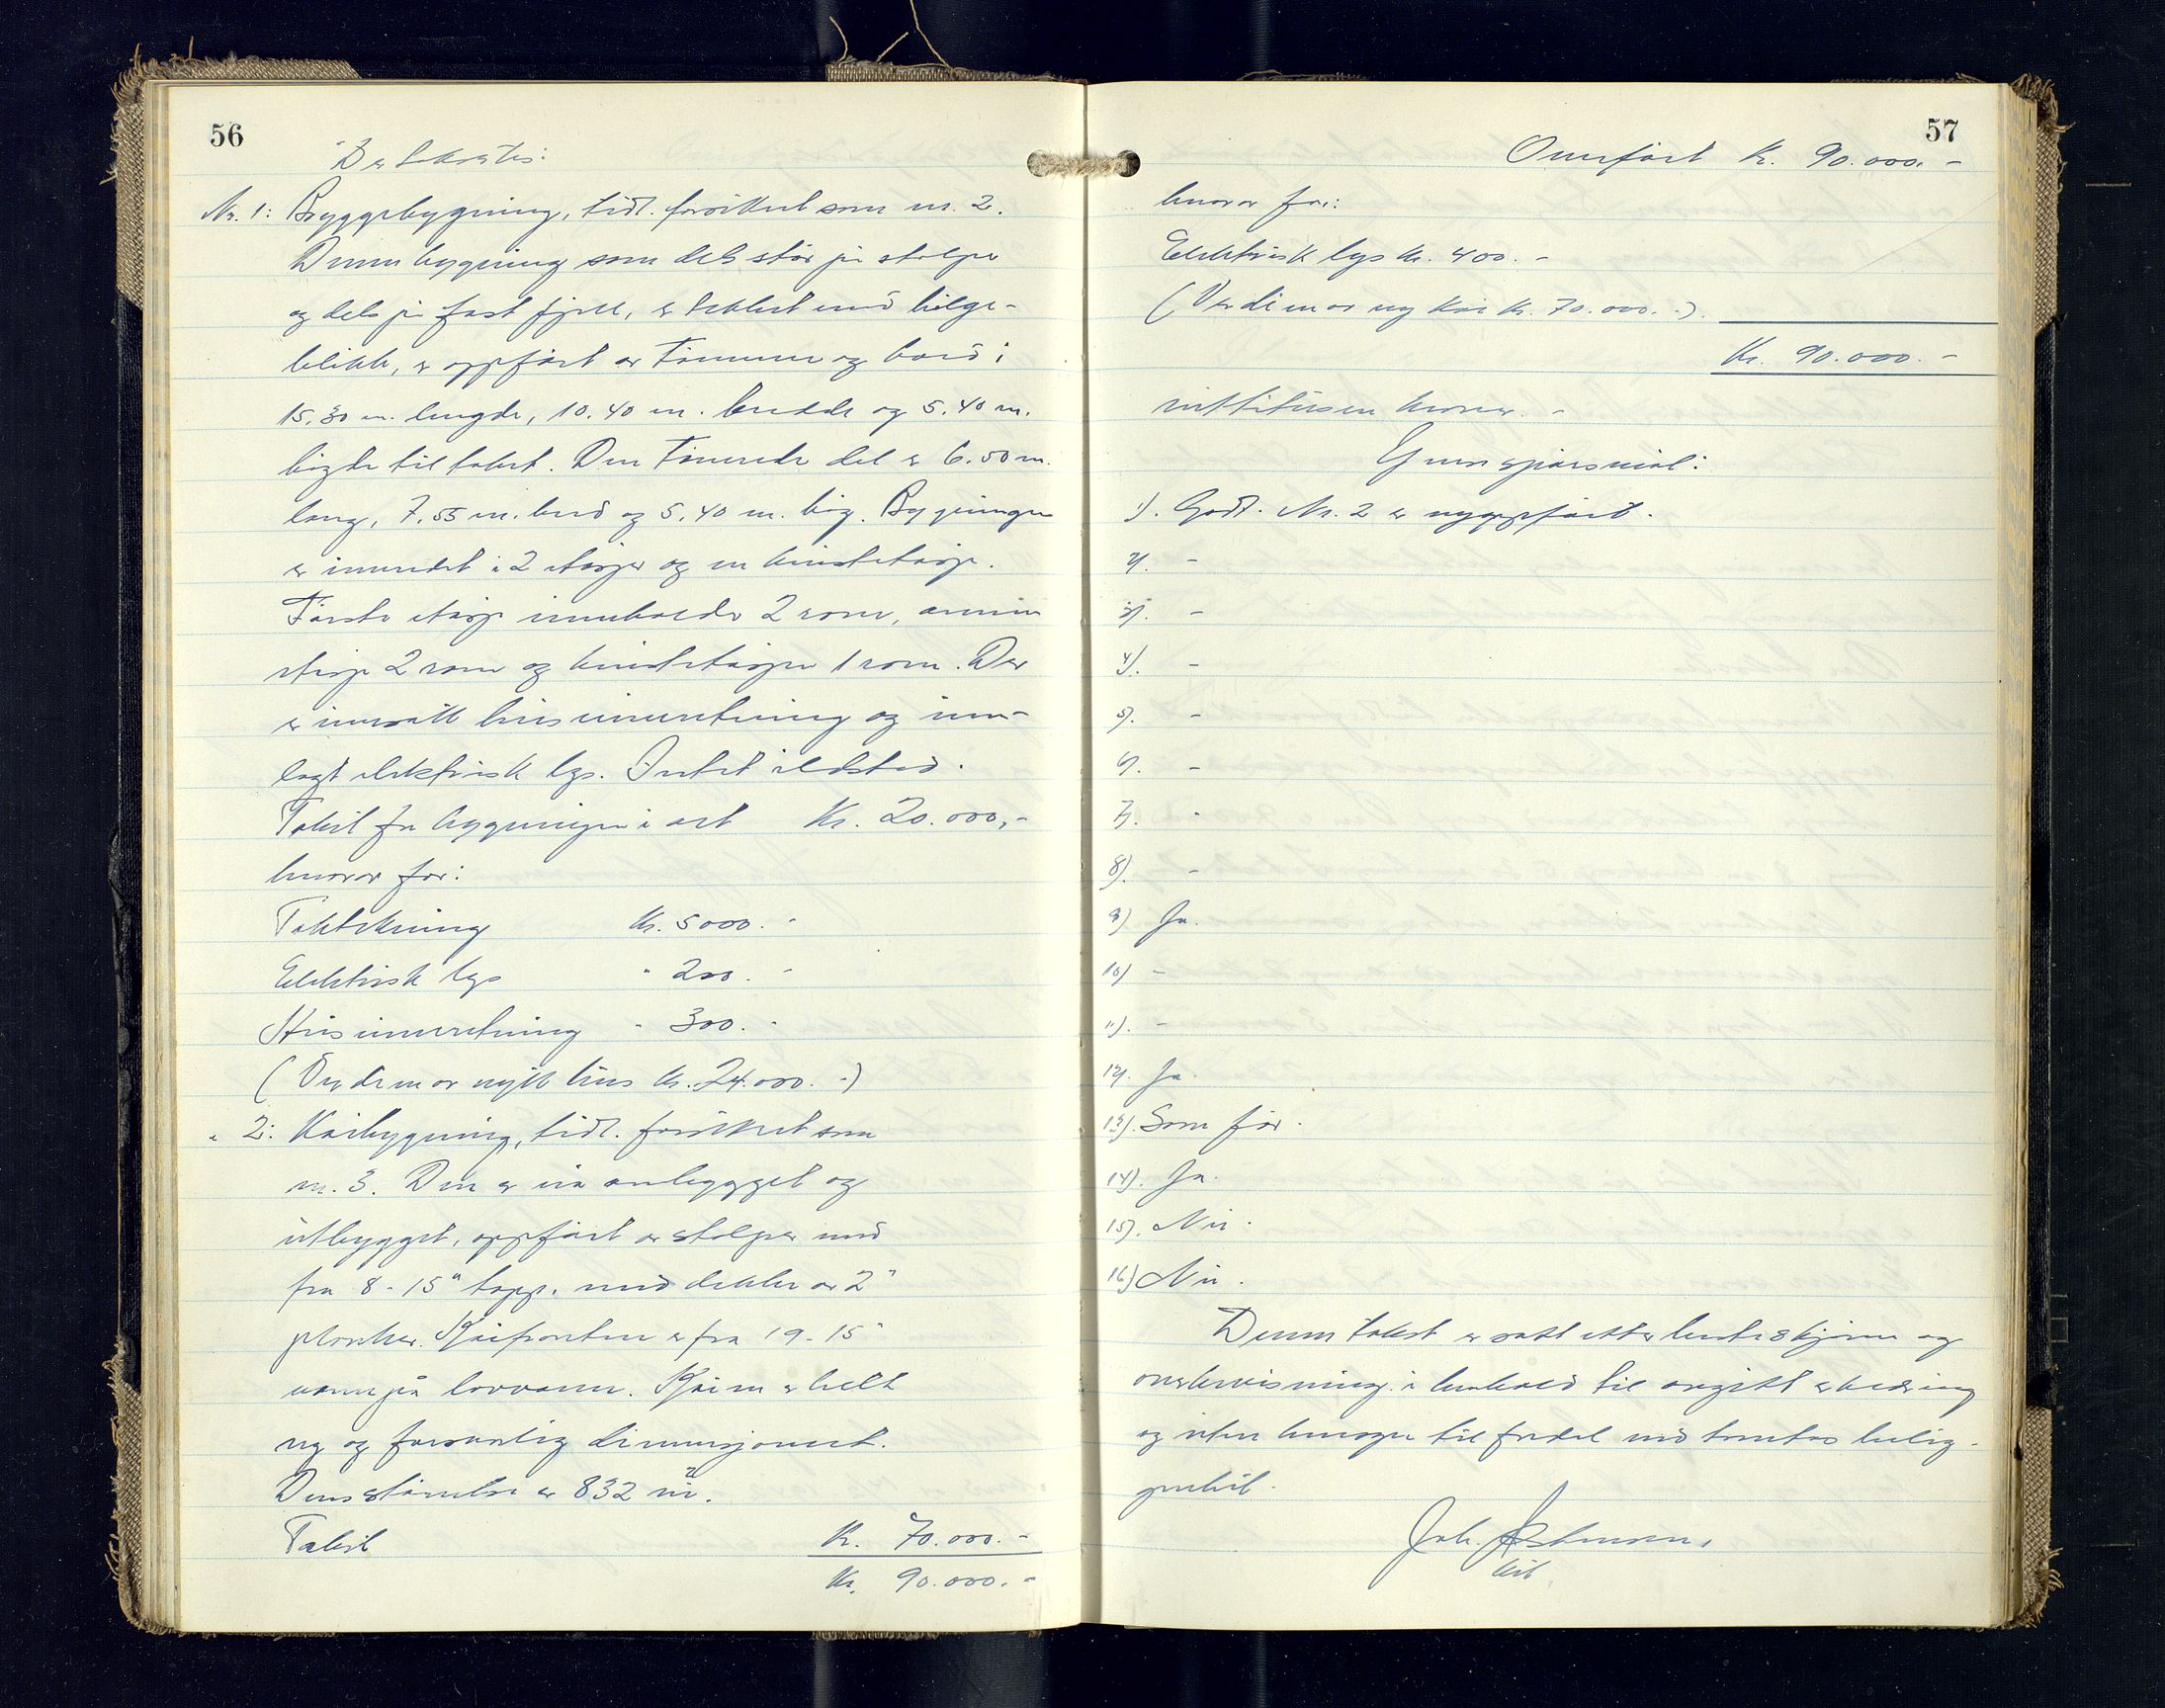 56
Det taksertes:
Nr. 1: Bryggebygning, tidl. forsikret som nr. 2.
Denne bygning som dels står på stolper
og dels på fast fjell, er tekket med bølge-
blikk, er oppført av tømmer og bord i
15.30 m. lengde, 10.40 m. bredde og 5.40 m.
høgde til taket. Den tømrede del er 6.50 m.
lang, 7.55 m. bred og 5.40 m. høg. Bygningen
er innredet i 2 etasjer og en kvistetasje.
Første etasje inneholder 2 rom, annen
etasje 2 rom og kvistetasjen 1 rom. Der
er innsatt heisinnretning og inn-
lagt elektrisk lys. Intet ildsted.
Takst for bygningen i alt Kr. 20.000,-
hvorav for:
Taktekning Kr. 5000.-
Elektrisk lys " 200.-
Heisinnretning " 300.-
(Verdien av nytt hus kr. 24.000.-)
" 2: Kaibygning, tidl. forsikret som
nr. 3. Den er nå ombygget og
utbygget, oppført av stolper med
fra 8-15" topp, med dekke av 2"
planker. Kaifronten er fra 19-15'
vann på lavvann. Kaien er helt
ny og forsvarlig dimensjonert.
Dens størrelse er 832 m².
Takst Kr. 70.000.-
Kr. 90.000.-
57
Overført kr. 90.000.-
hvorav for:
Elektrisk lys kr. 400.-
(Verdien av ny kai kr. 70.000.-)
Kr. 90.000.-
nittitusen kroner.-
Grunnspørsmål:
1). Godt. Nr. 2 er nyoppført.
2). -
3). -
4). -
5). -
6). -
7). -
8). -
9) Ja.
10) -
11). -
12). Ja.
13). Som før.
14). Ja.
15). Nei.
16) Nei.
Denne takst er satt etter beste skjønn og
overbevisning i henhold til avgitt erklæring
og uten hensyn til fordel ved tomtas belig-
genhet.
Joh. Johansen,